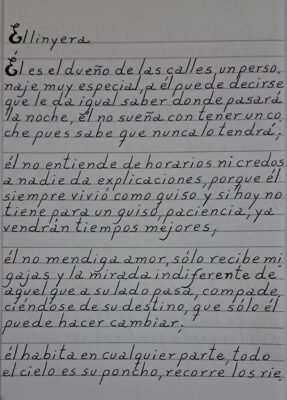 Ellinyera
Él es el dueño de las calles, un perso_
naje muy especial, a él puede decirse
que le da igual saber donde pasará
la noche, él no sueña con tener un co_
che pues sabe que nunca lo tendrá;
él no entiende de horarios ni credos
a nadie da explicaciones, porque él
siempre vivió como quiso y si hoy no
tiene para un guiso, paciencia, ya
vendrán tiempos mejores,
él no mendiga amor, sólo recibe mi
gajas y la mirada indiferente de
aquel que a su lado pasa, compade_
ciéndose de su destino, que sólo él
puede hacer cambiar;
él habita en cualquier parte, todo
el cielo es su poncho, recorre los rie_